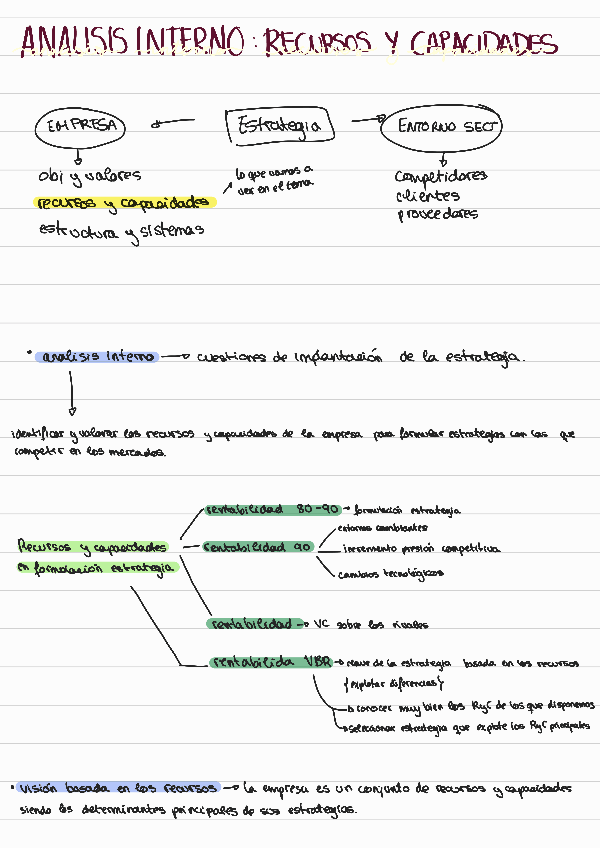 ANALISIS INTERNO: RECURSOS Y CAPACIDADES
EMPRESA ← Estrategia → ENTORNO SECT
obj y valores
recursos y capacidades
estructura y sistemas
lo que vamos a
ver en el tema
competidores
clientes
proveedores
• analisis interno → cuestiones de implantación de la estrategia.
identificar y valorar los recursos y capacidades de la empresa para formular estrategias con las que
competir en los mercados.
Recursos y capacidades
en formulación estrategia
rentabilidad 80-90 → formulación estrategia
rentabilidad 90
entornos cambiantes
incremento presión competitiva
cambios tecnológicos
rentabilidad → VC sobre los rivales
rentabilida VBR → clave de la estrategia basada en los recursos
{explotar diferencias}
→ conocer muy bien los RyC de los que disponemos
→ seleccionar estrategia que explote los RyC principales
• visión basada en los recursos → la empresa es un conjunto de recursos y capacidades
siendo los determinantes principales de sus estrategias.